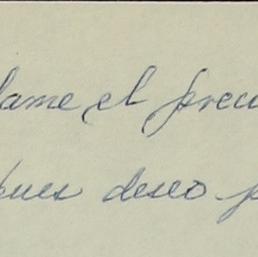 lame el preci
pues deseo p